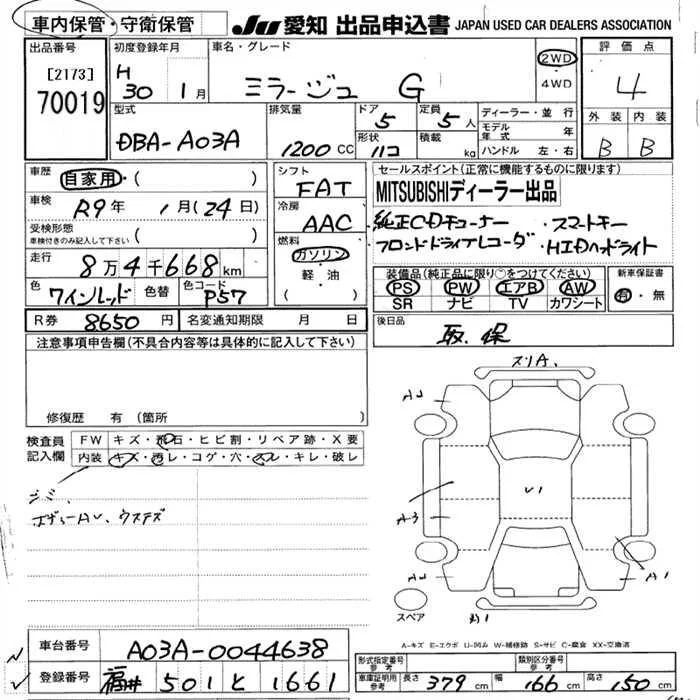 車内保管・守衛保管
JU 愛知 出品申込書 JAPAN USED CAR DEALERS ASSOCIATION
出品番号
[2173]
70019
初度登録年月
H
30 1月
車名・グレード
ミラージュ G
2WD
・
4WD
評価点
4
外装 内装
B B
型式
DBA-A03A
排気量
1200 CC
ドア
5
形状
ハコ
定員
5 人
積載
kg
ディーラー・並行
モデル年式 年
ハンドル 左・右
車歴
自家用・( )
車検
R9年 1月(24日)
受検形態
車検付きのみ記入して下さい ( )
走行
8万4千668km
色
ワインレッド 色替
色コード
P57
R券 8650円 名変通知期限 月 日
シフト
FAT
冷房
AAC
燃料
ガソリン
・
軽・油
( )
セールスポイント(正常に機能するものに限ります)
MITSUBISHIディーラー出品
・純正CDチューナー ・スマートキー
・フロントドライブレコーダ ・HIDヘッドライト
装備品(純正品に限り○をつけてください)
PS PW エアB AW
SR ナビ TV カワシート
新車保証書
有・無
後日品
取、保
注意事項申告欄(不具合内容等は具体的に記入して下さい)
修復歴 有(箇所 )
検査員記入欄
FW キズ・飛石・ヒビ割・リペア跡・X要
内装 キズ・汚レ・コゲ・穴・スレ・キレ・破レ
シミ
スリA、
V1
A3
A1
スペア
A-キズ E-エクボ U-凹み W-補修跡 S-サビ C-腐食 XX-交換済
車台番号 A03A-0044638
登録番号 福井 501 と 1661
形式指定番号 参考
類別区分番号 参考
車庫証明用参考 長さ 379cm 幅 166cm 高さ 150cm